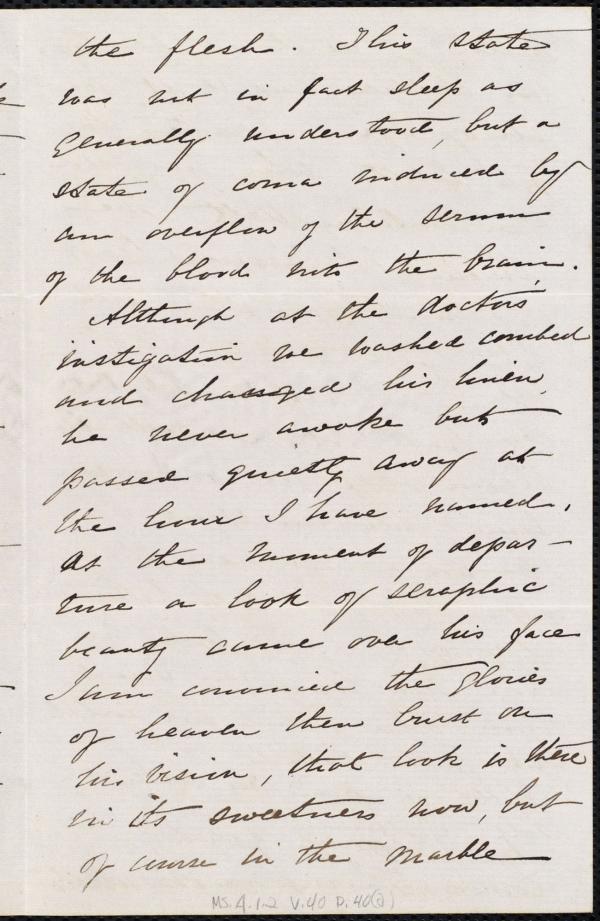 the flesh. This state
was not in fact sleep as
generally understood, but a
state of coma induced by
an overflow of the serum
of the blood into the brain.
Although at the doctors'
instigation we washed combed
and changed his linen,
he never awoke but
passed quietly away at
the hour I have named.
At the moment of depar-
ture a look of seraphic
beauty came over his face
I am convinced the glories
of heaven then burst on
his vision, that look is there
in its sweetness now, but
of course in the marble
MS.A.1.2 V.40 P.40(2)